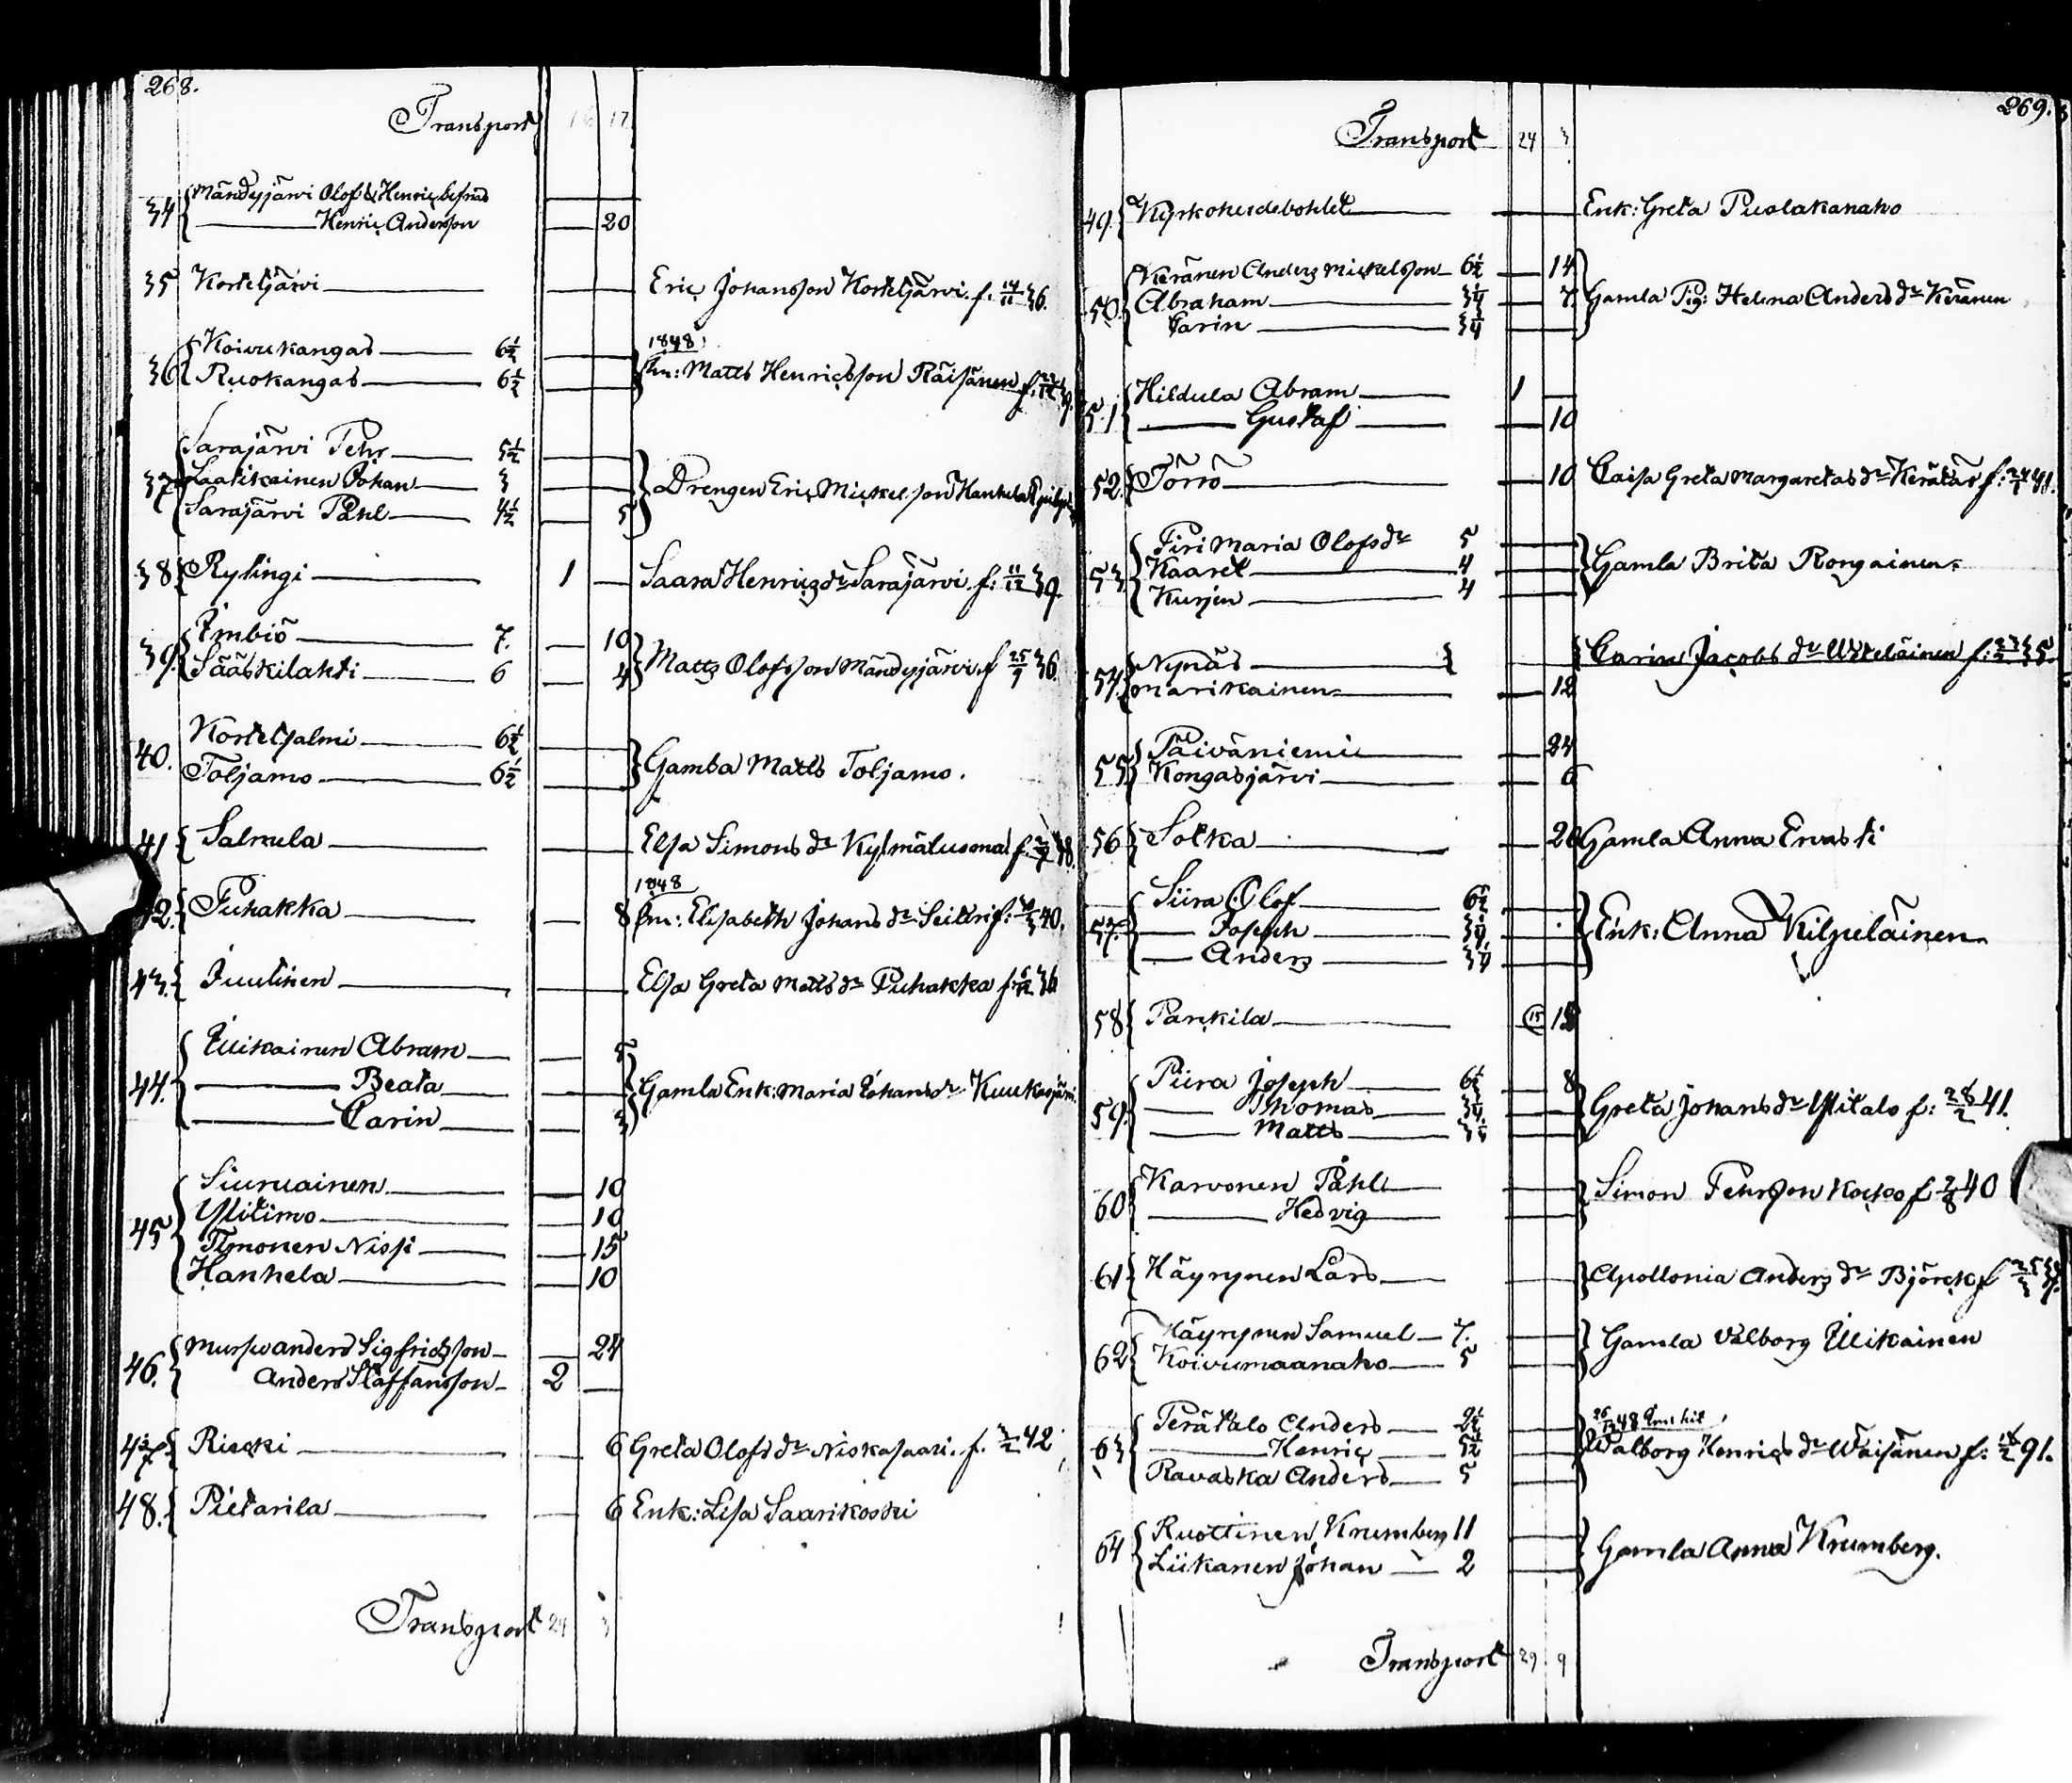 268.
Transport 16 17
34 Mändyjärvi Olof & Henric befriad —
— Henric Anderson — 20
35 Korteljärvi — Eric Johansson Korteljärvi. f. 14/11 36.
36 Koivukangas — 6½ — 1848
Ruokangas — 6½ — Matts Henricsson Räisänen f. 39.
37 Sarajärvi Pehr — 5½ —
Laatikainen Johan — 3 — Drengen Eric Mickelsson Hanhela
Sarajärvi Påhl — 4½ — 5
38 Rytingi — 1 — Saara Henricsdr Sarajärvi. f. 11/12 39.
39 Imbiö — 7. — 10
Sääskilahti — 6 — 4 Matts Olofsson Mändyjärvi f 25/9 36.
40. Kortesalmi — 6½ —
Toljamo — 6½ — Gamla Matts Toljamo.
41 Salmela — Elsa Simons dr Kylmäluoma f. 38.
1848
42. Puhakka — 8 Elisabeth Johans dr Seitari f. 40.
43. Juutinen — Elsa Greta Matts dr Puhakka f. 36
44. Illikainen Abram — 5
— Beata — Gamla Enk: Maria Johans dr Kuukasjärvi.
— Carin — 3
45 Siuruainen — 10
Ylitimo — 10
Timonen Nissi — 15
Hanhela — 10
46. Mursu Anders Sigfridsson — 24
Anders Staffansson — 2 —
47 Riecki — 6 Greta Olofs dr Niskasaari. f. 3/2 42
48. Pietarila — 6 Enk: Lisa Saarikoski
Transport 24 3
269.
Transport 24 3
49 Kyrkoherdebohlet — Enk: Greta Puolakanaho
50. Keränen Anders Mickelsson — 6½ — 14
Abraham — 3¼ — 7 Gamla Pig: Helena Anders dr Keränen
Carin — 3¼ —
51 Hildula Abram — 1 —
— Gustaf — 10
52. Törrö — 10 Caisa Greta Margaretas dr Kerätär f. 41.
53 Piri Maria Olofs dr 5 —
Kaaret — 4 — Gamla Brita Rongainen
Kurjen — 4 —
54. Nynäs — Carin Jacobs dr Uteläinen f. 35.
Marikainen — 12
55 Päiväniemi — 24
Kongasjärvi — 6
56 Sotka — 20 Gamla Anna Ervasti
57. Siira Olof — 6½ —
— Joseph — 3¼ — Enk: Anna Kilpeläinen
— Anders — 3¼ —
58 Parckila — 15 18
59. Piira Joseph — 6½ — 8
— Thomas — 3¼ — Greta Johans dr Ylitalo f: 28/2 41.
— Matts — 3¼ —
60 Karvonen Påhl — Simon Pehrsson Kocko f 2/8 40
— Hedvig —
61 Häyrynen Lars — Apollonia Anders dr Björck f 25/3
62 Häyrynen Samuel — 7. — Gamla Valborg Illikainen
Koivumaanaho — 5 —
63 Perätalo Anders — 2½ —
— Henric — 5½ — Walborg Henrics dr Wäisänen f: 18/2 91.
Ravaska Anders — 5 —
64 Ruottinen, Krumberg 11 —
Liikanen Johan — 2 — Gamla Anna Krumberg.
Transport 29 9